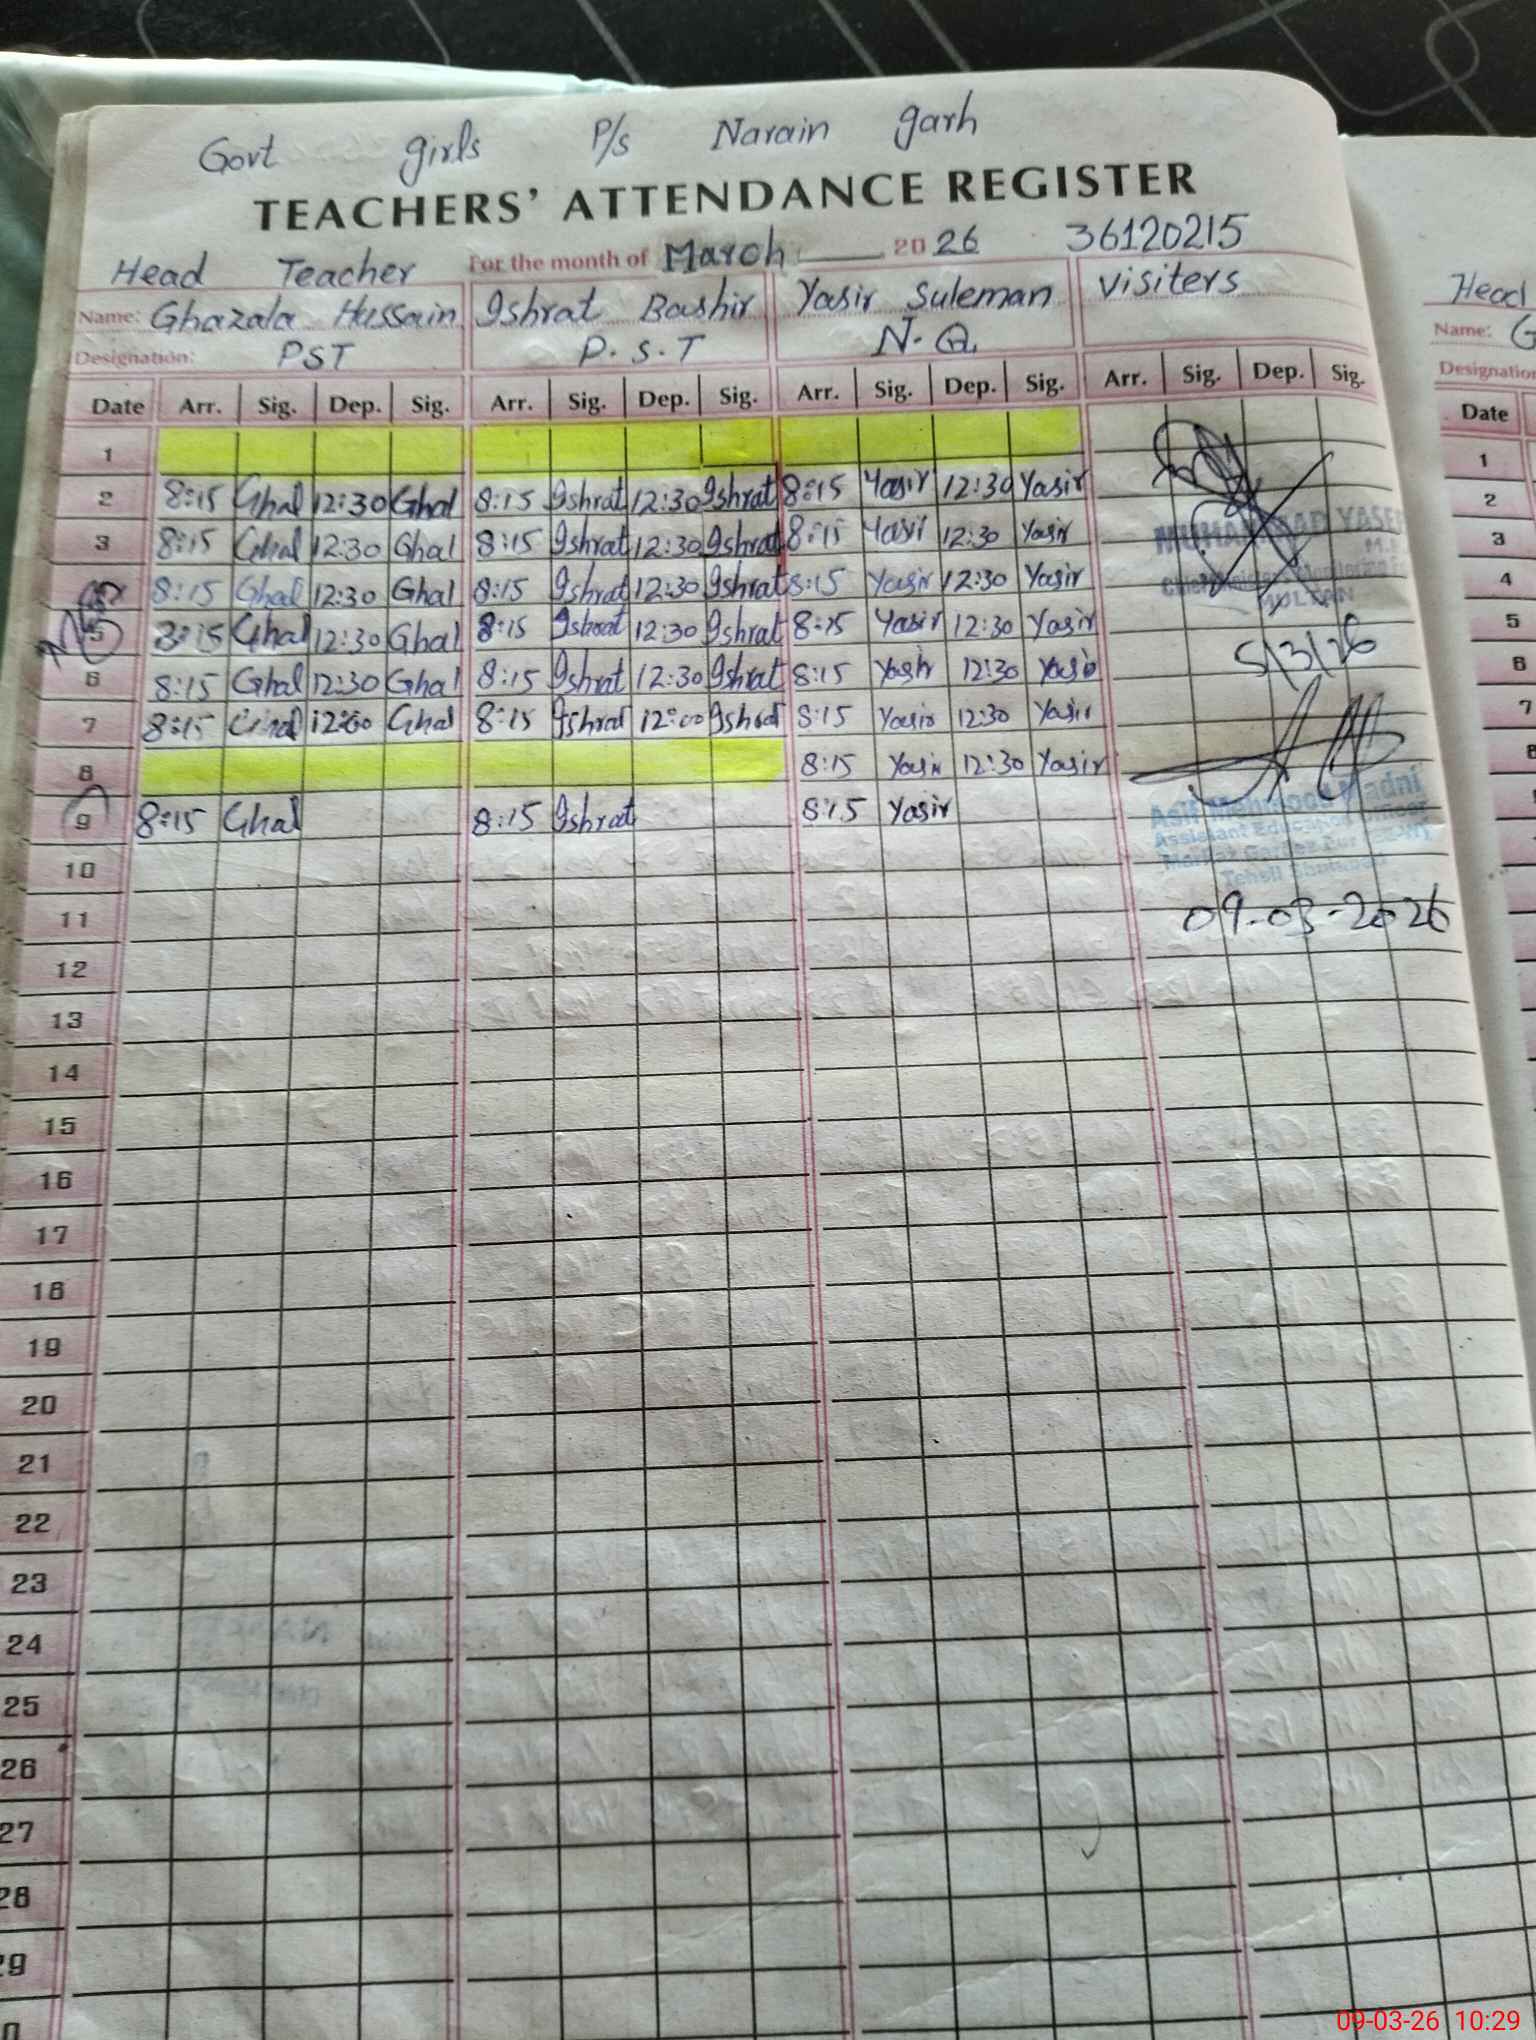 Govt girls P/s Narain garh
TEACHERS' ATTENDANCE REGISTER
Head Teacher For the month of March 2026 36120215
Name: Ghazala Hussain Ishrat Bashir Yasir Suleman Visiters
Designation: PST P.S.T N.Q.
Date Arr. Sig. Dep. Sig. Arr. Sig. Dep. Sig. Arr. Sig. Dep. Sig. Arr. Sig. Dep. Sig.
1
2 8:15 Ghal 12:30 Ghal 8:15 Ishrat 12:30 Ishrat 8:15 Yasir 12:30 Yasir
3 8:15 Ghal 12:30 Ghal 8:15 Ishrat 12:30 Ishrat 8:15 Yasir 12:30 Yasir
8:15 Ghal 12:30 Ghal 8:15 Ishrat 12:30 Ishrat 8:15 Yasir 12:30 Yasir
5 8:15 Ghal 12:30 Ghal 8:15 Ishrat 12:30 Ishrat 8:15 Yasir 12:30 Yasir
6 8:15 Ghal 12:30 Ghal 8:15 Ishrat 12:30 Ishrat 8:15 Yasir 12:30 Yasir
7 8:15 Ghal 12:00 Ghal 8:15 Ishrat 12:00 Ishrat 8:15 Yasir 12:30 Yasir
8 8:15 Yasir 12:30 Yasir
9 8:15 Ghal 8:15 Ishrat 8:15 Yasir
10
11
12
13
14
15
16
17
18
19
20
21
22
23
24
25
26
27
28
29
MUHAMMAD YASE
MULTAN
5/3/26
Asif Mehmood Madni
Assistant Education Officer
Tehsil
09-03-2026
Head
Name: G
Designation
Date
1
2
3
4
5
6
7
8
09-03-26 10:29